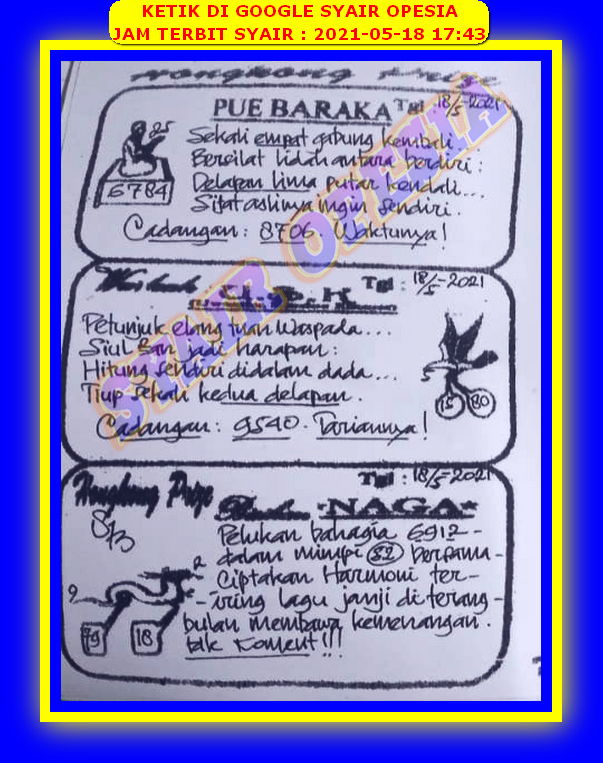 KETIK DI GOOGLE SYAIR OPESIA
JAM TERBIT SYAIR : 2021-05-18 17:43
Hongkong Prize
PUE BARAKA Tgl 18/5-2021
25
6784
Sekali empat gabung kembali.
Bersilat lidah antara berdiri:
Delapan lima putar kendali...
Sifat aslinya ingin sendiri.
Cadangan: 8706. Waktunya!
SYAIR OPESIA
Tgl : 18/5-2021
Petunjuk elang tuan waspada...
Siul jadi harapan:
Hitung sendiri didalam dada...
Tiup sekali kedua delapan.
15 80
Cadangan: 9540. Tariannya!
Hongkong Prize
Tgl : 18/5-2021
NAGA
Pelukan bahagia 6912-
dalam mimpi 82 bersama-
Ciptakan Harmoni ter-
-iring lagu janji di terang-
bulan membawa kemenangan.
tak Koment!!!
2
9
79 18